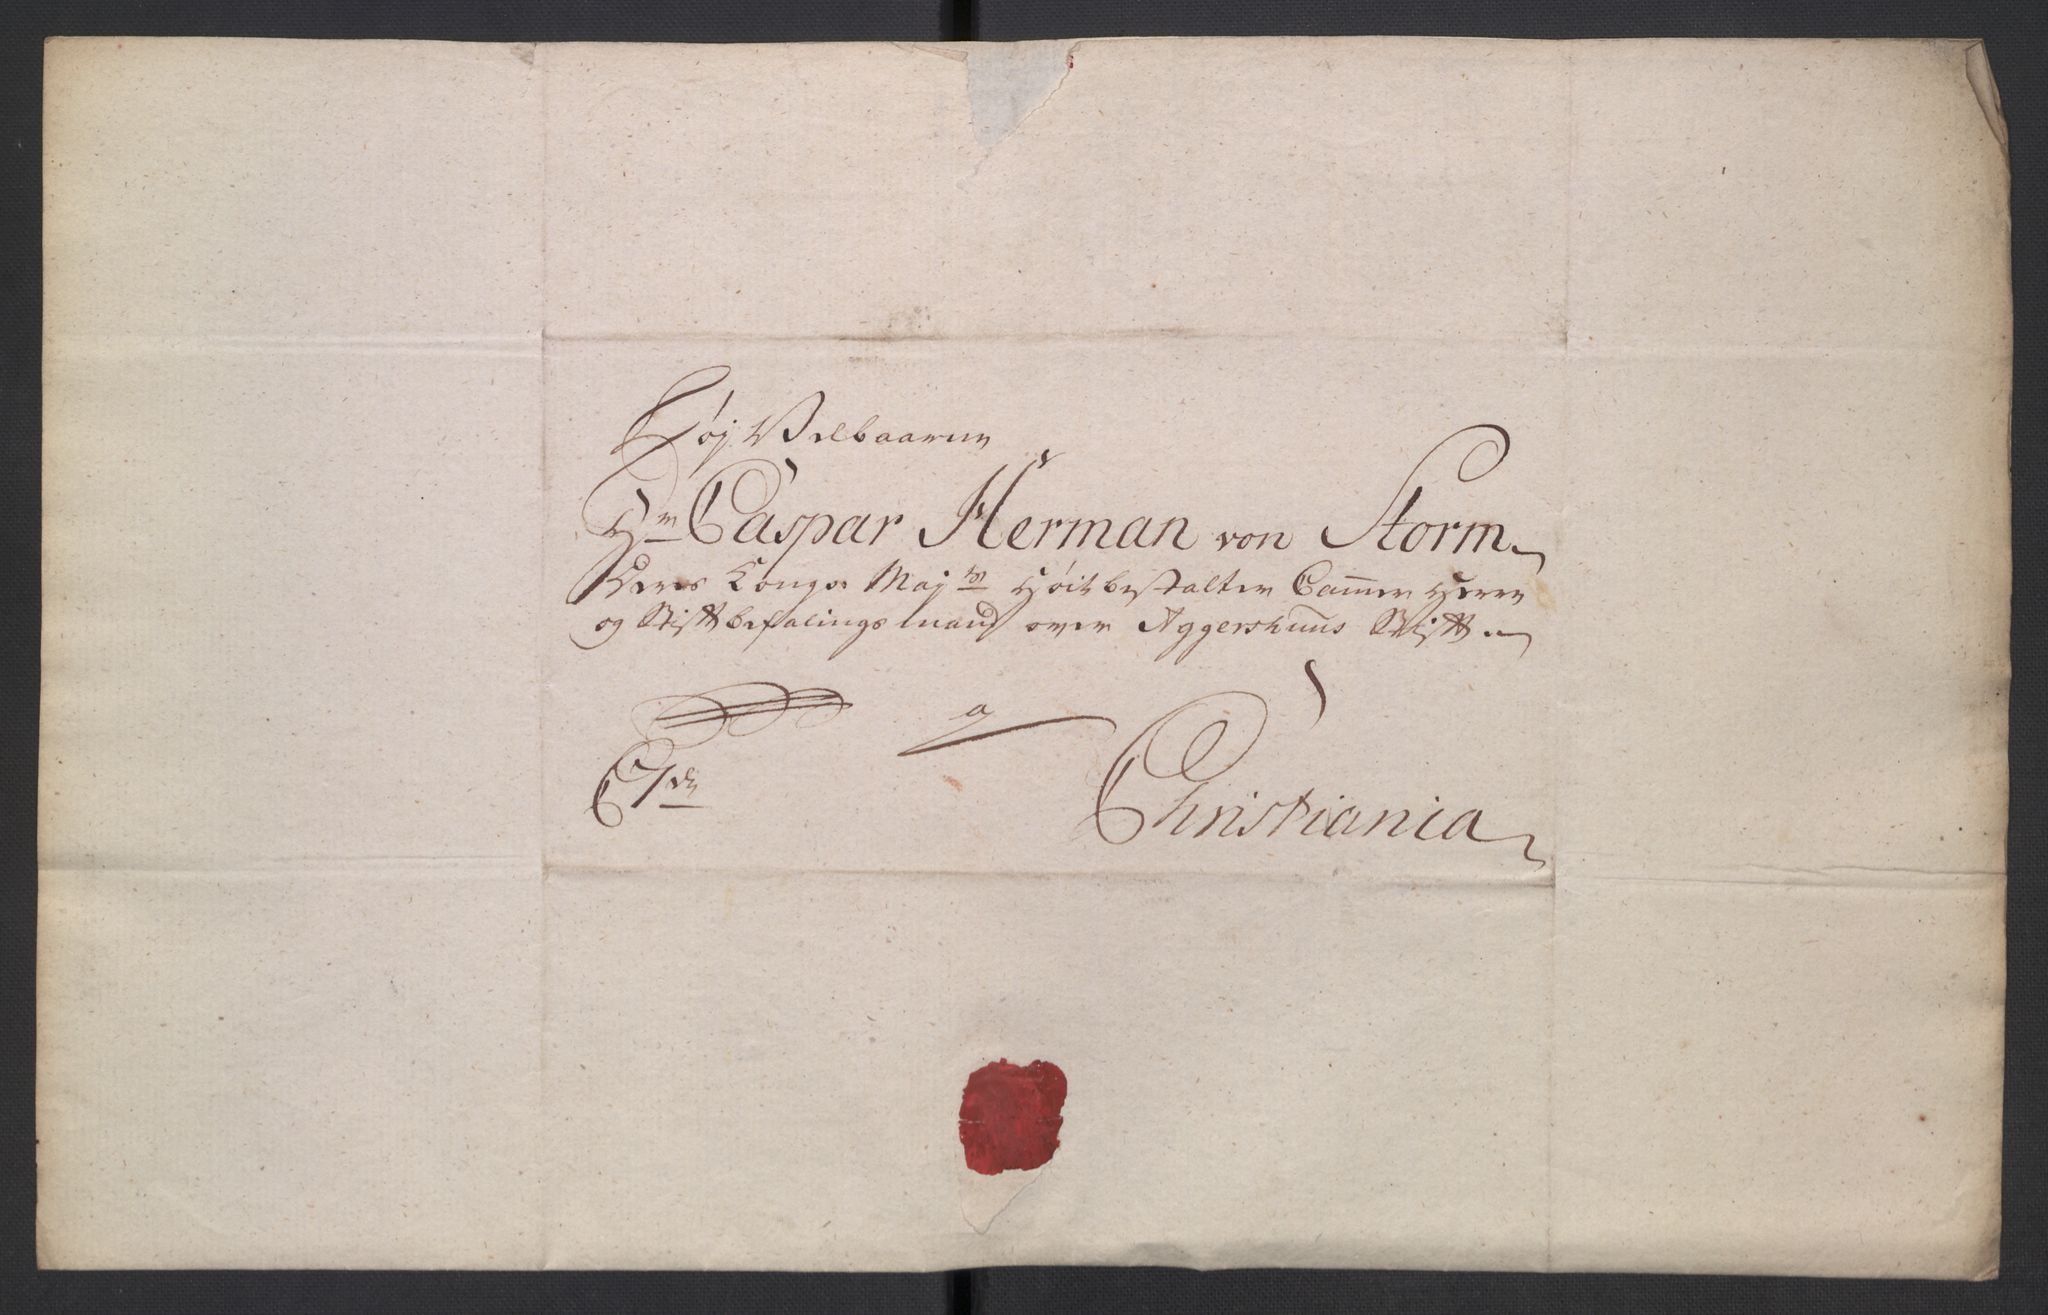 Høj Velbaarne
Hr Caspar Herman von Storm
Deres Konge Majts Høit bestalter Cammer Herre
og Stiftbefalingsmand over Aggershuus Stift
a
Christiania